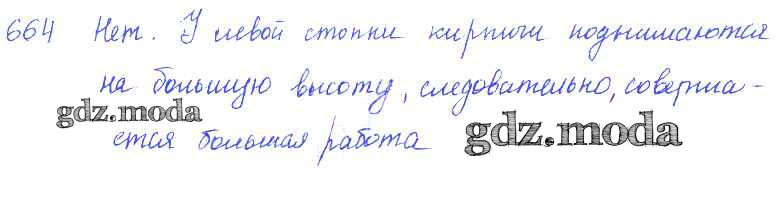 664 Нет. У левой стопки кирпичи поднимаются
на большую высоту, следовательно, соверша-
gdz.moda
ется большая работа gdz.moda